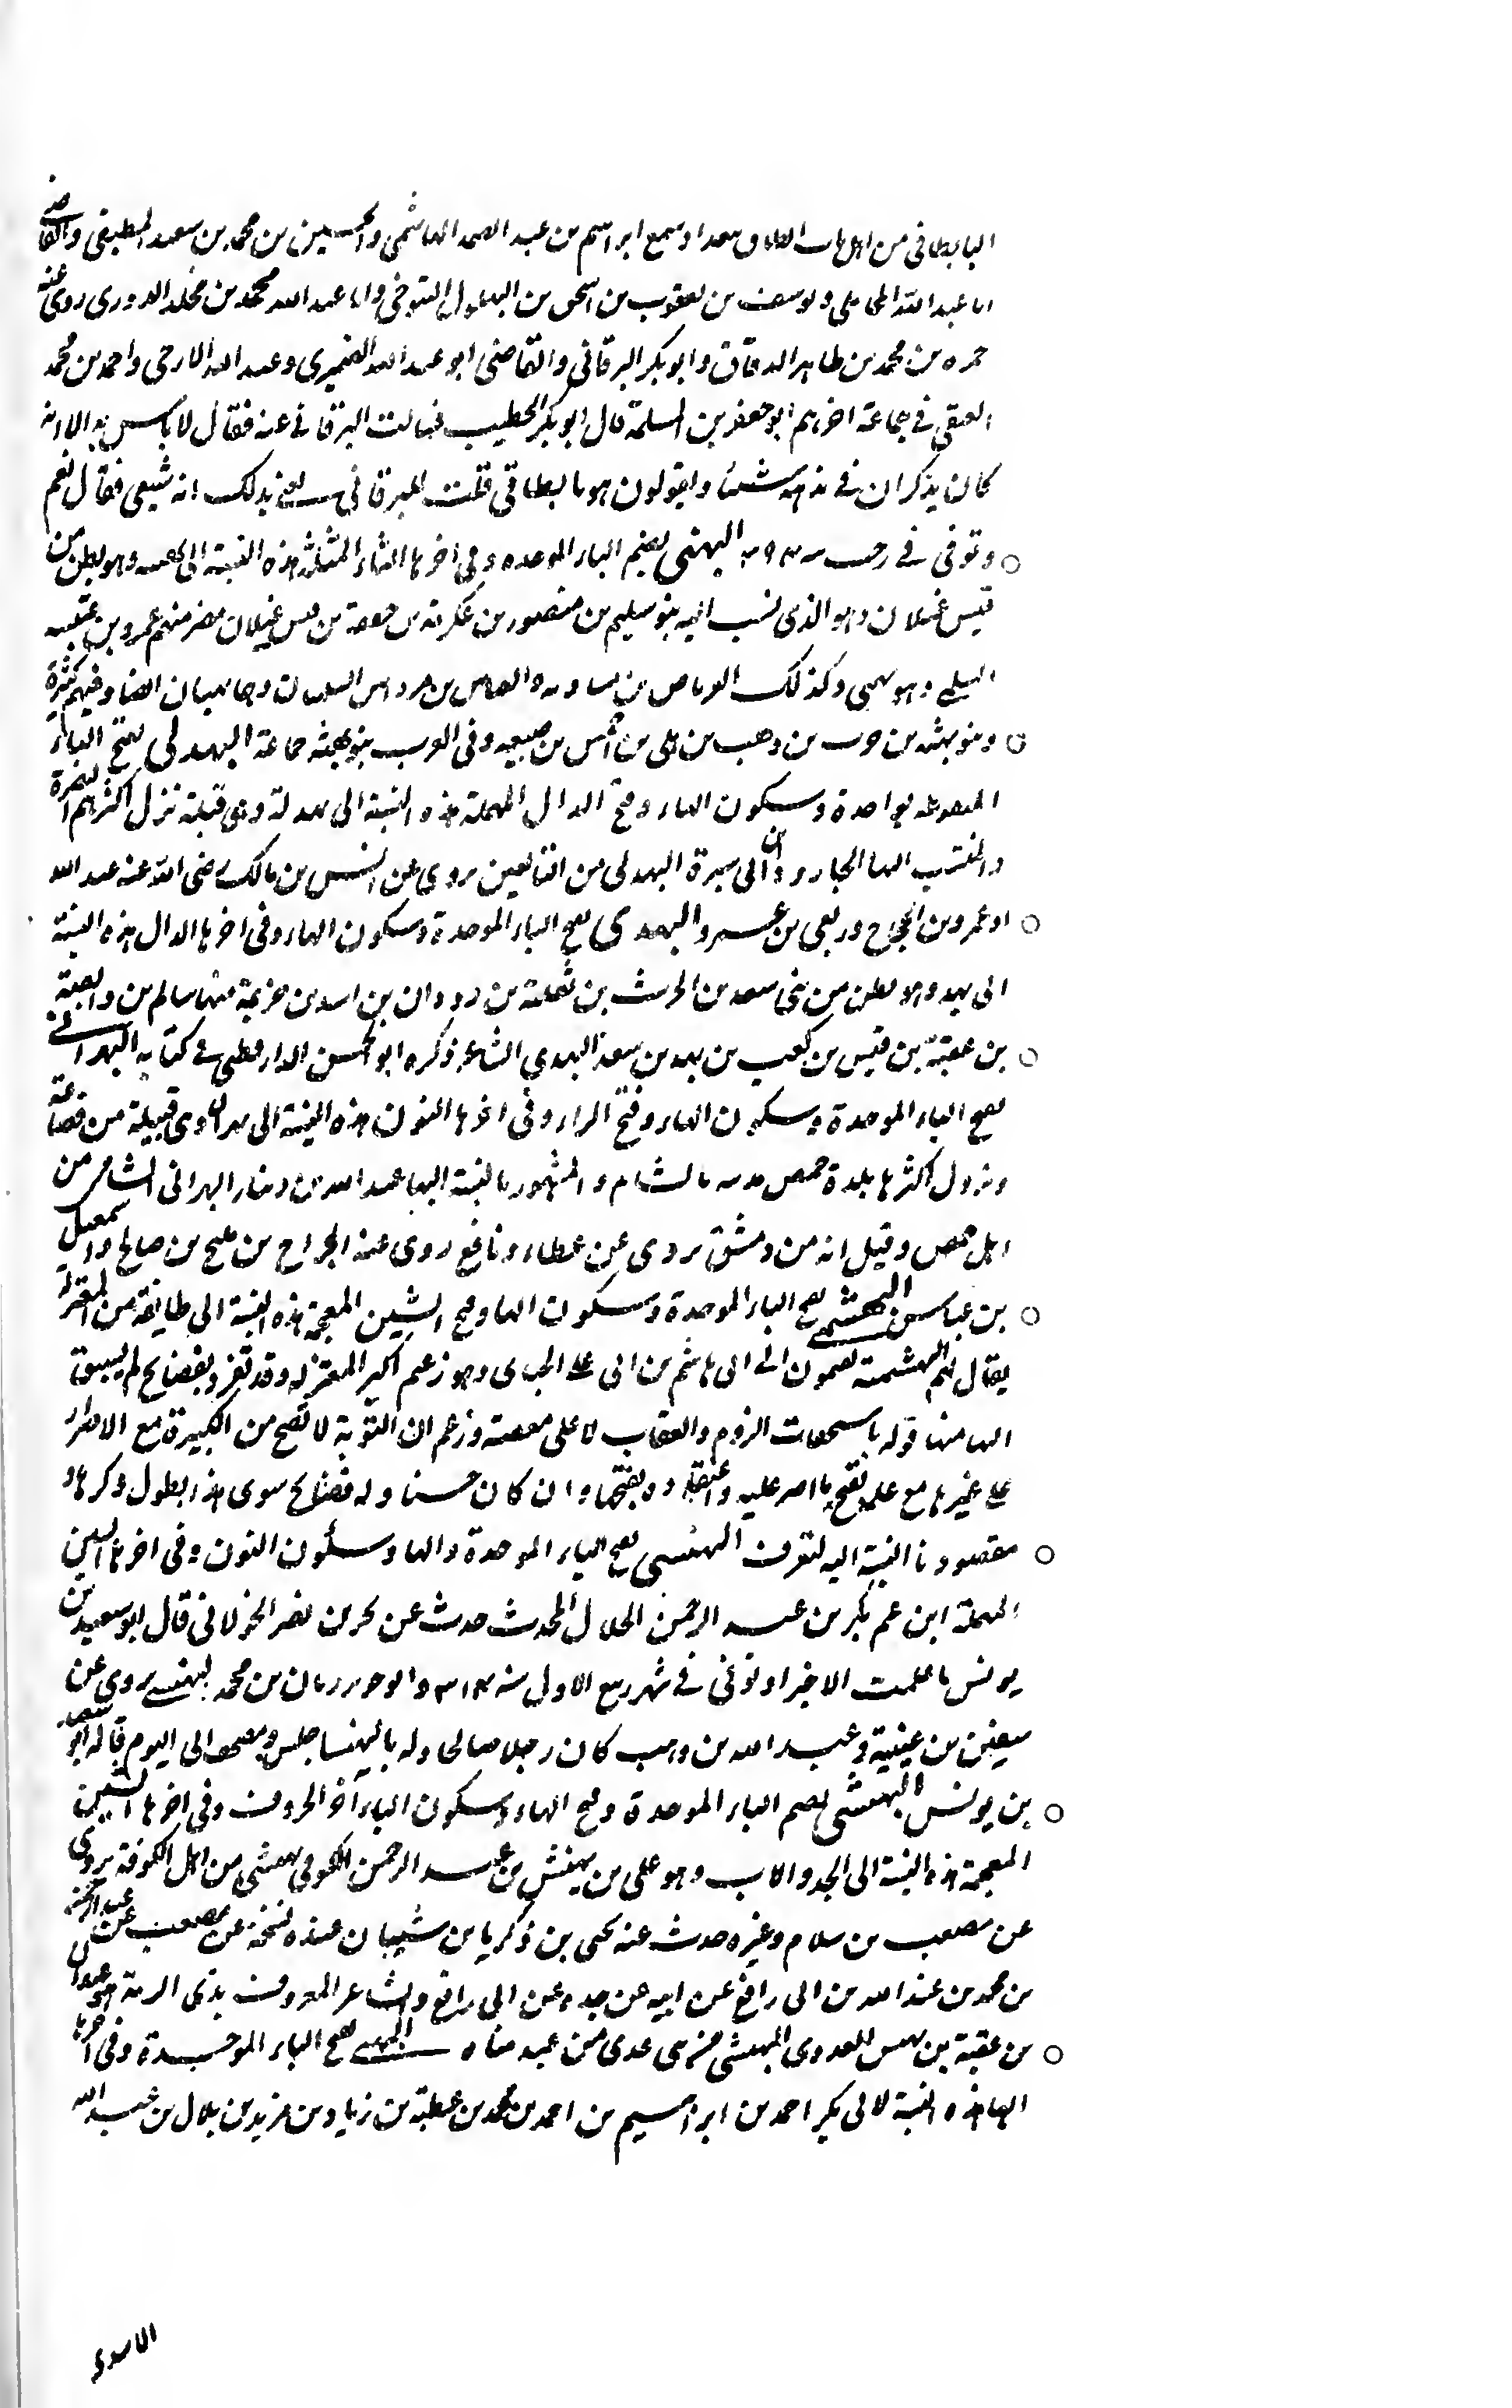 البابطاقى من اهل باب الطاق ببغداد سمع ابراهيم بن عبد الصمد الهاشمى والحسين بن محمد بن سعيد المطبقى والقاضى
ابا عبد الله المحاملى ويوسف بن يعقوب بن اسحق بن البهلول التنوخى وابا عبد الله محمد بن مخلد الدورى روى عنه
حمزه بن محمد بن طاهر الدقاق وابو بكر البرقانى والقاضى ابو عبد الله الصيمرى وعبد الله الازجى واحمد بن محمد
العتيقى فى جماعة اخرهم ابو جعفر بن المسلمة قال ابو بكر الخطيب سالت البرقانى عنه فقال لا باس به الا انه
كان يذكر ان فى مذهبه شيئا ويقولون هو بابطاقى قلت للبرقانى يعنى بذلك انه شيعى فقال نعم
وتوفى فى رجب سنه البهثى بضم الباء الموحده وفى اخرها الثاء المثلثة هذه النسبة الى بهثه وهو بطن من
قيس غيلان وهو الذى نسب اليه بنو سليم بن منصور بن عكرمة بن خصفة بن قيس غيلان مضر منهم عمرو بن عبسه
السلمى وهو بهثى وكذلك العرباض بن ساريه والعباس بن مرداس السلميان وهما بهثيان ايضا وفيهم كثرة
وبنو بهثه بن حرب بن وهب بن جلى بن احمس بن ضبيعه وفى العرب بنو بهثه جماعة البهدلى بفتح الباء
المنقوطه بواحدة وسكون الهاء وفتح الدال المهملة هذه النسبة الى بهدلة وهى قبيلة نزل اكثرهم البصرة
والمنتسب اليها الجارود بن ابى سبرة البهدلى من التابعين يروى عن انس بن مالك رضى الله عنه عبد الله
او عمرو بن الجراح وربعى بن عمرو البهدى بفتح الباء الموحدة وسكون الهاء وفى اخرها الدال هذه النسبة
الى بهد وهو بطن من بنى سعد بن الحرث بن ثعلبة بن دودان بن اسد بن خزيمة منها سالم بن وابصة
بن عقبة بن قيس بن كعب بن بهد بن سعد البهدى الشاعر ذكره ابو الحسن الدارقطنى فى كتابه البهرانى
بفتح الباء الموحدة وسكون الهاء وفتح الراء وفى اخرها النون هذه النسبة الى بهراء وهى قبيلة من قضاعة
ونزول اكثرها بلدة حمص مدينه بالشام والمشهور بالنسبة اليها عبد الله بن دينار البهرانى الشامى من
اهل حمص وقيل انه من دمشق يروى عن عطاء ونافع روى عنه الجراح بن مليح بن صالح واسمعيل
بن عياش البهشمى بفتح الباء الموحدة وسكون الهاء وفتح الشين المعجمة هذه النسبة الى طايفة من المعتزلة
يقال لهم البهشمية ينتمون الى ابى هاشم بن ابى على الجبائى وهو زعيم اكثر المعتزله وقد تفرد بفضايح لم يسبق
اليها منها قوله باستحقاق الذم والعقاب لا على معصية وزعم ان التوبة لا تصح من الكبيرة مع الاصرار
على غيرها مع علمه بقبح ما اصر عليه واعتقاده بقبحها وان كان حسنا وله فضايح سوى هذا يطول ذكرها و
مقصودنا النسبة اليه لتعرف البهنسى بفتح الباء الموحدة والهاء وسكون النون وفى اخرها السين
المهملة ابن عم بكر بن عبد الرحمن الخلال المحدث حدث عن بحر بن نصر الخولانى قال ابو سعيد بن
يونس ما علمت الا خيرا وتوفى فى شهر ربيع الاول سنه ٣١٤ وابو بن محمد البهنسى يروى عن
سفين بن عيينة وعبد الله بن وهب كان رجلا صالحا وله بالبهنسا حبس ومصحف الى اليوم قاله ابو سعيد
بن يونس البهيشى بضم الباء الموحدة وفتح الهاء وسكون الياء آخر الحروف وفى اخرها الشين
المعجمة هذه النسبة الى الجد والاب وهو على بن بهيش بن عبد الرحمن الكوفى بهيشى من اهل الكوفة يروى
عن مصعب بن سلام وغيره حدث عنه يحيى بن زكريا بن شيبان عنده نسخة عن مصعب عن عبد الرحمن
بن محمد بن عبد الله بن ابى رافع عن ابيه عن جده عن ابى رافع والشاعر المعروف بذى الرمة هو غيلان
بن عقبة بن بهيس العدوى البهيشى من بنى عدى من عبد مناه البهى بفتح الباء الموحدة وفى اخرها
الهاء هذه النسبة لابى بكر احمد بن ابراهيم بن احمد بن محمد بن عطية بن زياد بن مزيد بن بلال بن عبد الله
الاسدى